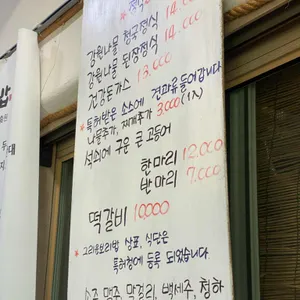 정식 14.000
강원나물 청국정식 14.000
강원나물 된장정식 14.000
건강돈가스 13.000
* 특허받은 소스에 견과류 들어갑니다
나물추가, 찌개추가 3.000 (1人)
석쇠에 구운 큰 고등어
한마리 12.000
반마리 7.000
떡갈비 10000
* 고리용보리밥 상표, 식단은
특허청에 등록 되었습니다
소주, 맥주, 막걸리, 백세주, 청하
밥